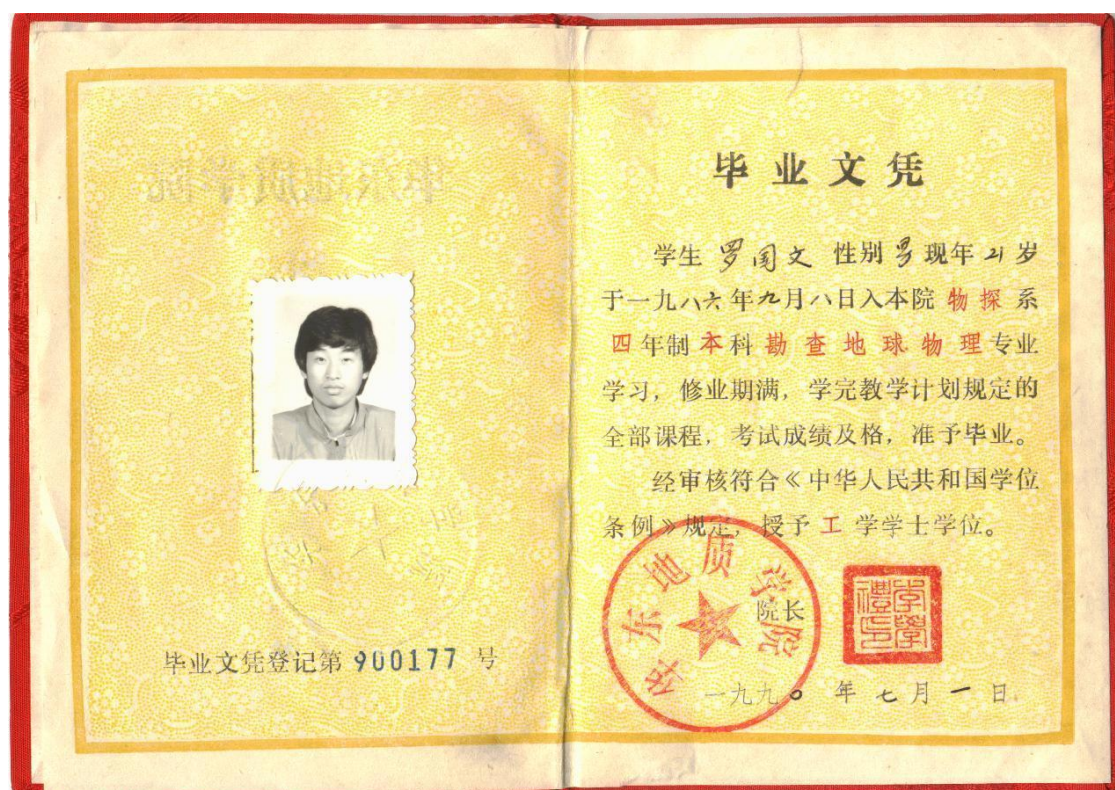 毕业文凭登记第 900177 号
毕业文凭
学生 罗国文 性别 男 现年 21 岁
于一九八六年九月八日入本院 物探 系
四年制本科勘查地球物理专业
学习，修业期满，学完教学计划规定的
全部课程，考试成绩及格，准予毕业。
经审核符合《中华人民共和国学位
条例》规定，授予 工 学学士学位。
华东地质学院
院长
一九九〇年七月一日